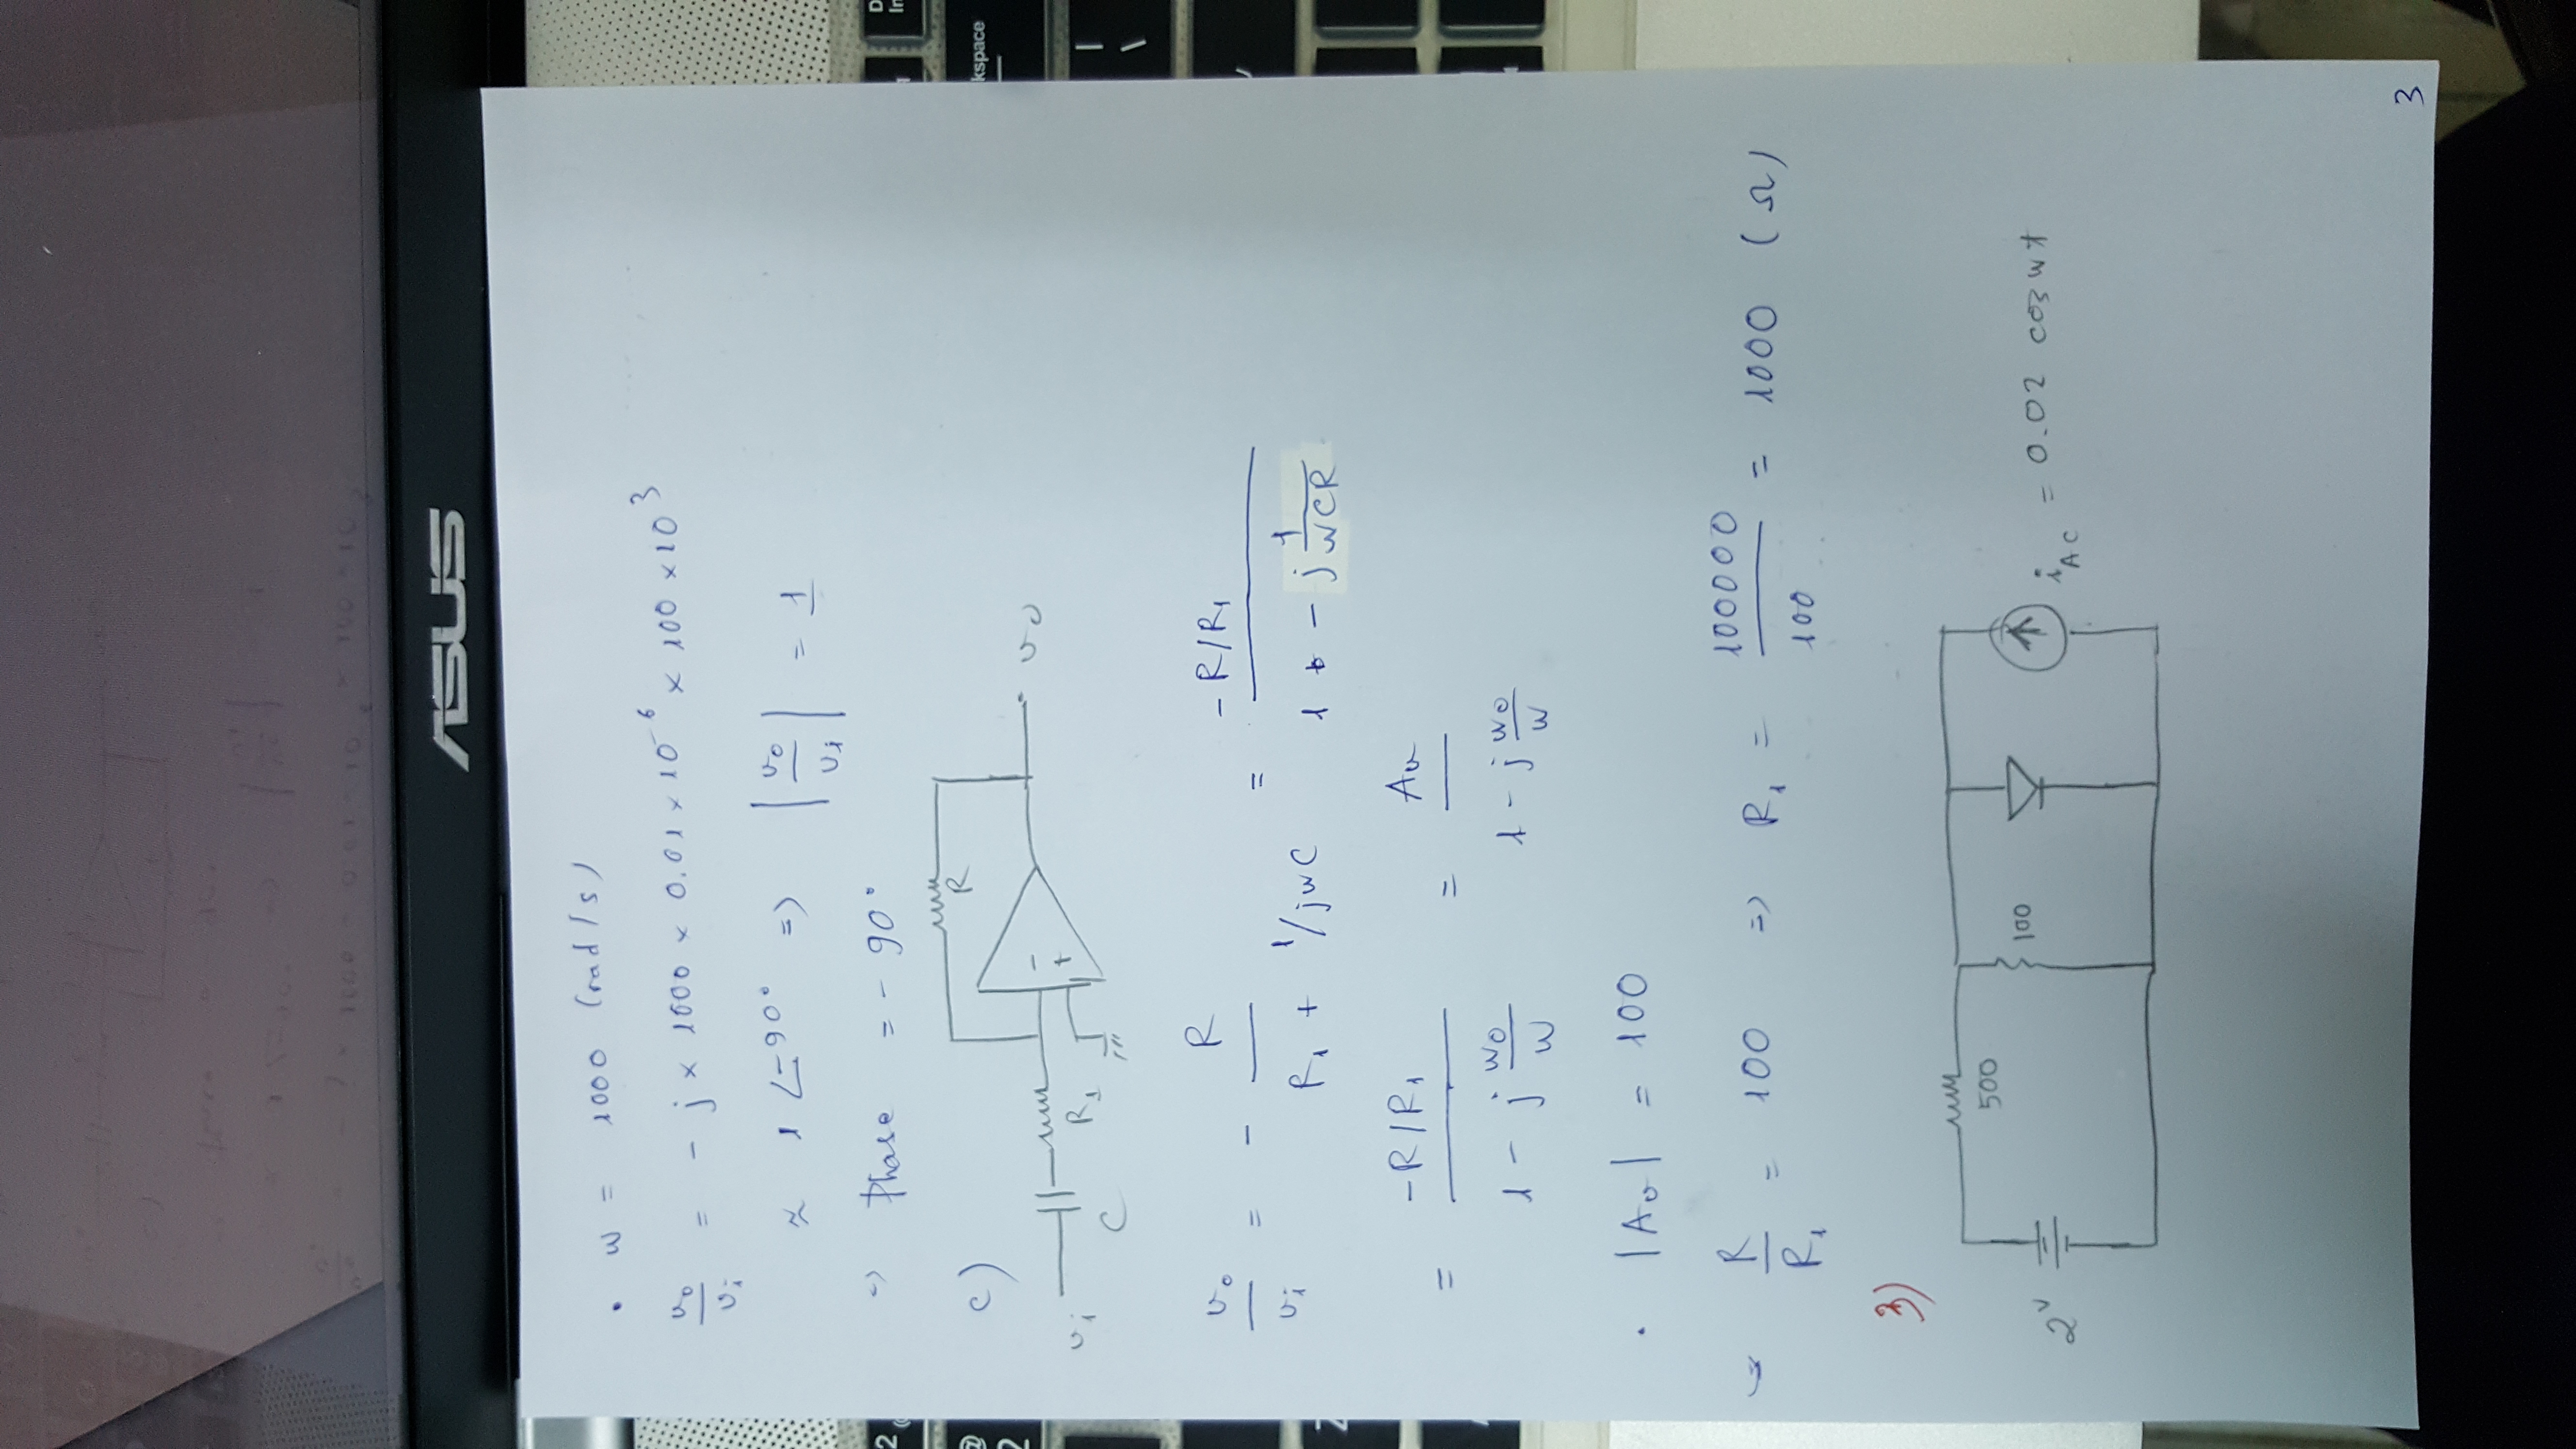 ASUS
. w = 1000 (rad/s)
vo/vi = - j × 1000 × 0.01 × 10^-6 × 100 × 10^3
≈ 1 ∠-90° => |vo/vi| = 1
=> Phase = - 90°
c)
R
vi
C
R1
-
+
vo
vo/vi = - R/(R1 + 1/jwC) = (-R/R1)/(1 - j 1/(wCR))
= (-R/R1)/(1 - j wo/w) = Av/(1 - j wo/w)
. |Av| = 100
R/R1 = 100 => R1 = 100000/100 = 1000 (Ω)
3)
500
100
2V
iAC = 0.02 cos wt
3
2
@
2
kspace
|
\